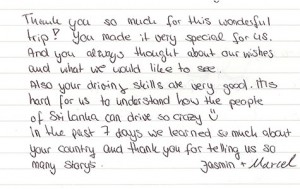 Thank you so much for this wonderful
trip! You made it very special for us.
And you always thought about our wishes
and what we would like to see.
Also your driving skills are very good. It's
hard for us to understand how the people
of Sri Lanka can drive so crazy
In the past 7 days we learned so much about
your country and thank you for telling us so
many storys.
Jasmin + Marcel